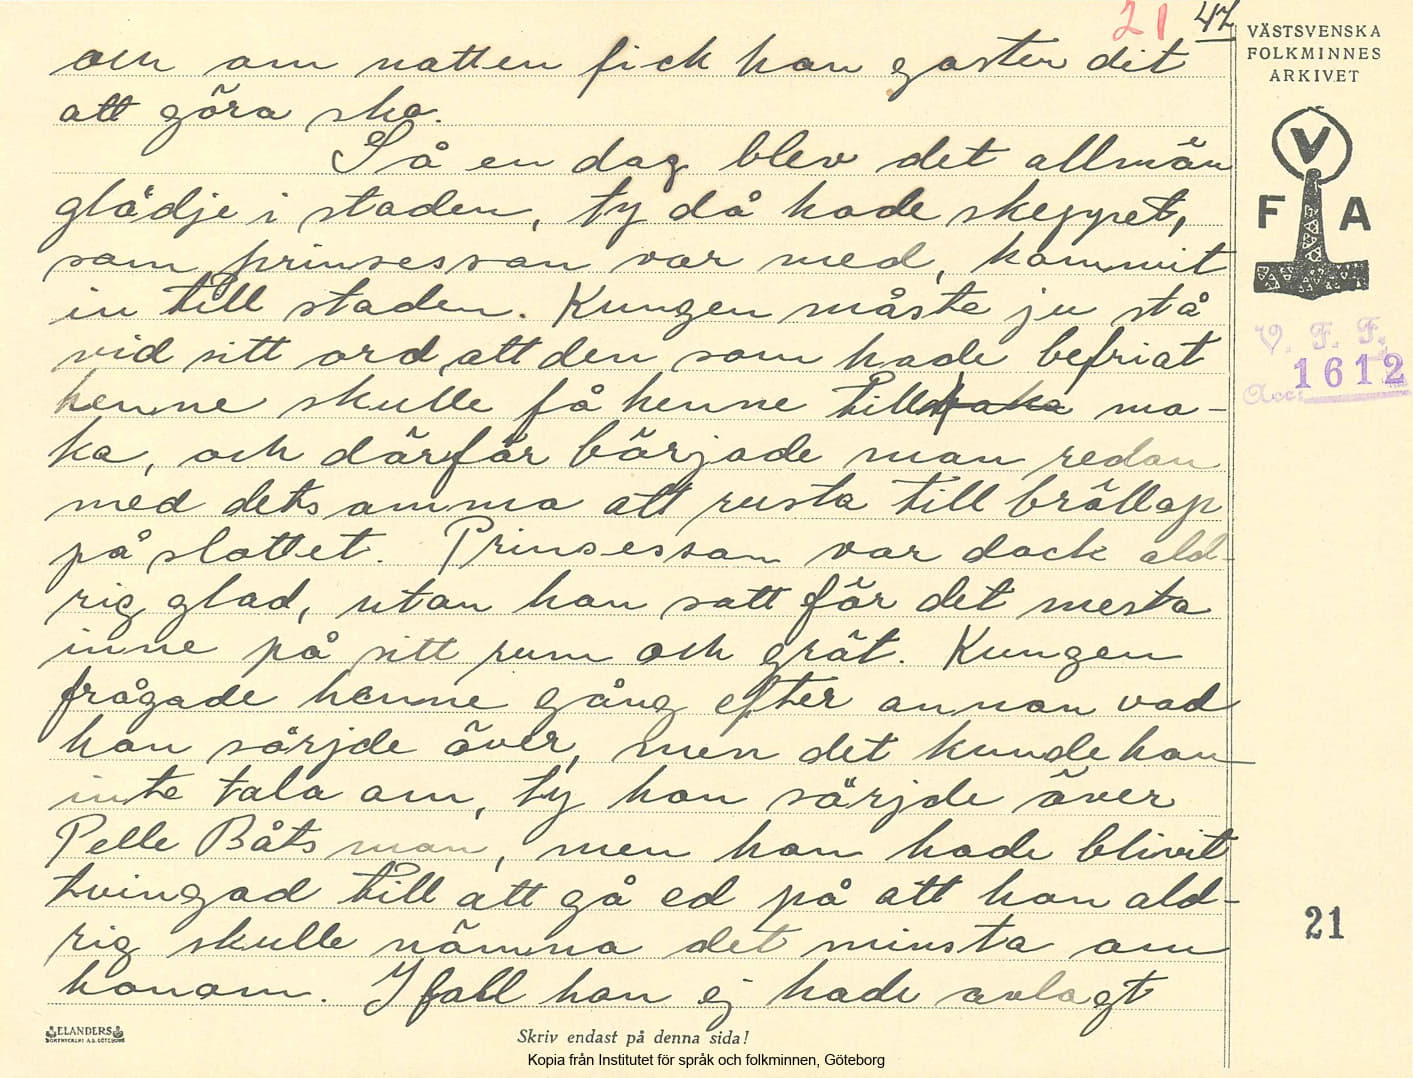 21 47
VÄSTSVENSKA
FOLKMINNES
ARKIVET
och om natten fick han gaster dit
att göra sko.
Så en dag blev det allmän
glädje i staden, ty då hade skeppet,
som prinsessan var med, kommit
in till staden. Kungen måste ju stå
vid sitt ord, att den som hade befriat
henne skulle få henne till maka ma-
ka, och därför började man redan
med detsamma att rusta till bröllop
på slottet. Prinsessan var dock ald-
rig glad, utan hon satt för det mesta
inne på sitt rum och grät. Kungen
frågade henne gång efter annan vad
hon sörjde över, men det kunde hon
inte tala om, ty hon sörjde över
Pelle Båtsman, men hon hade blivit
tvingad till att gå ed på att hon ald-
rig skulle nämna det minsta om
honom. I fall hon ej hade avlagt
V
F A
V. F. F.
Acc. 1612
21
ELANDERS
BOKTRYCKERI A.B. GÖTEBORG
Skriv endast på denna sida!
Kopia från Institutet för språk och folkminnen, Göteborg